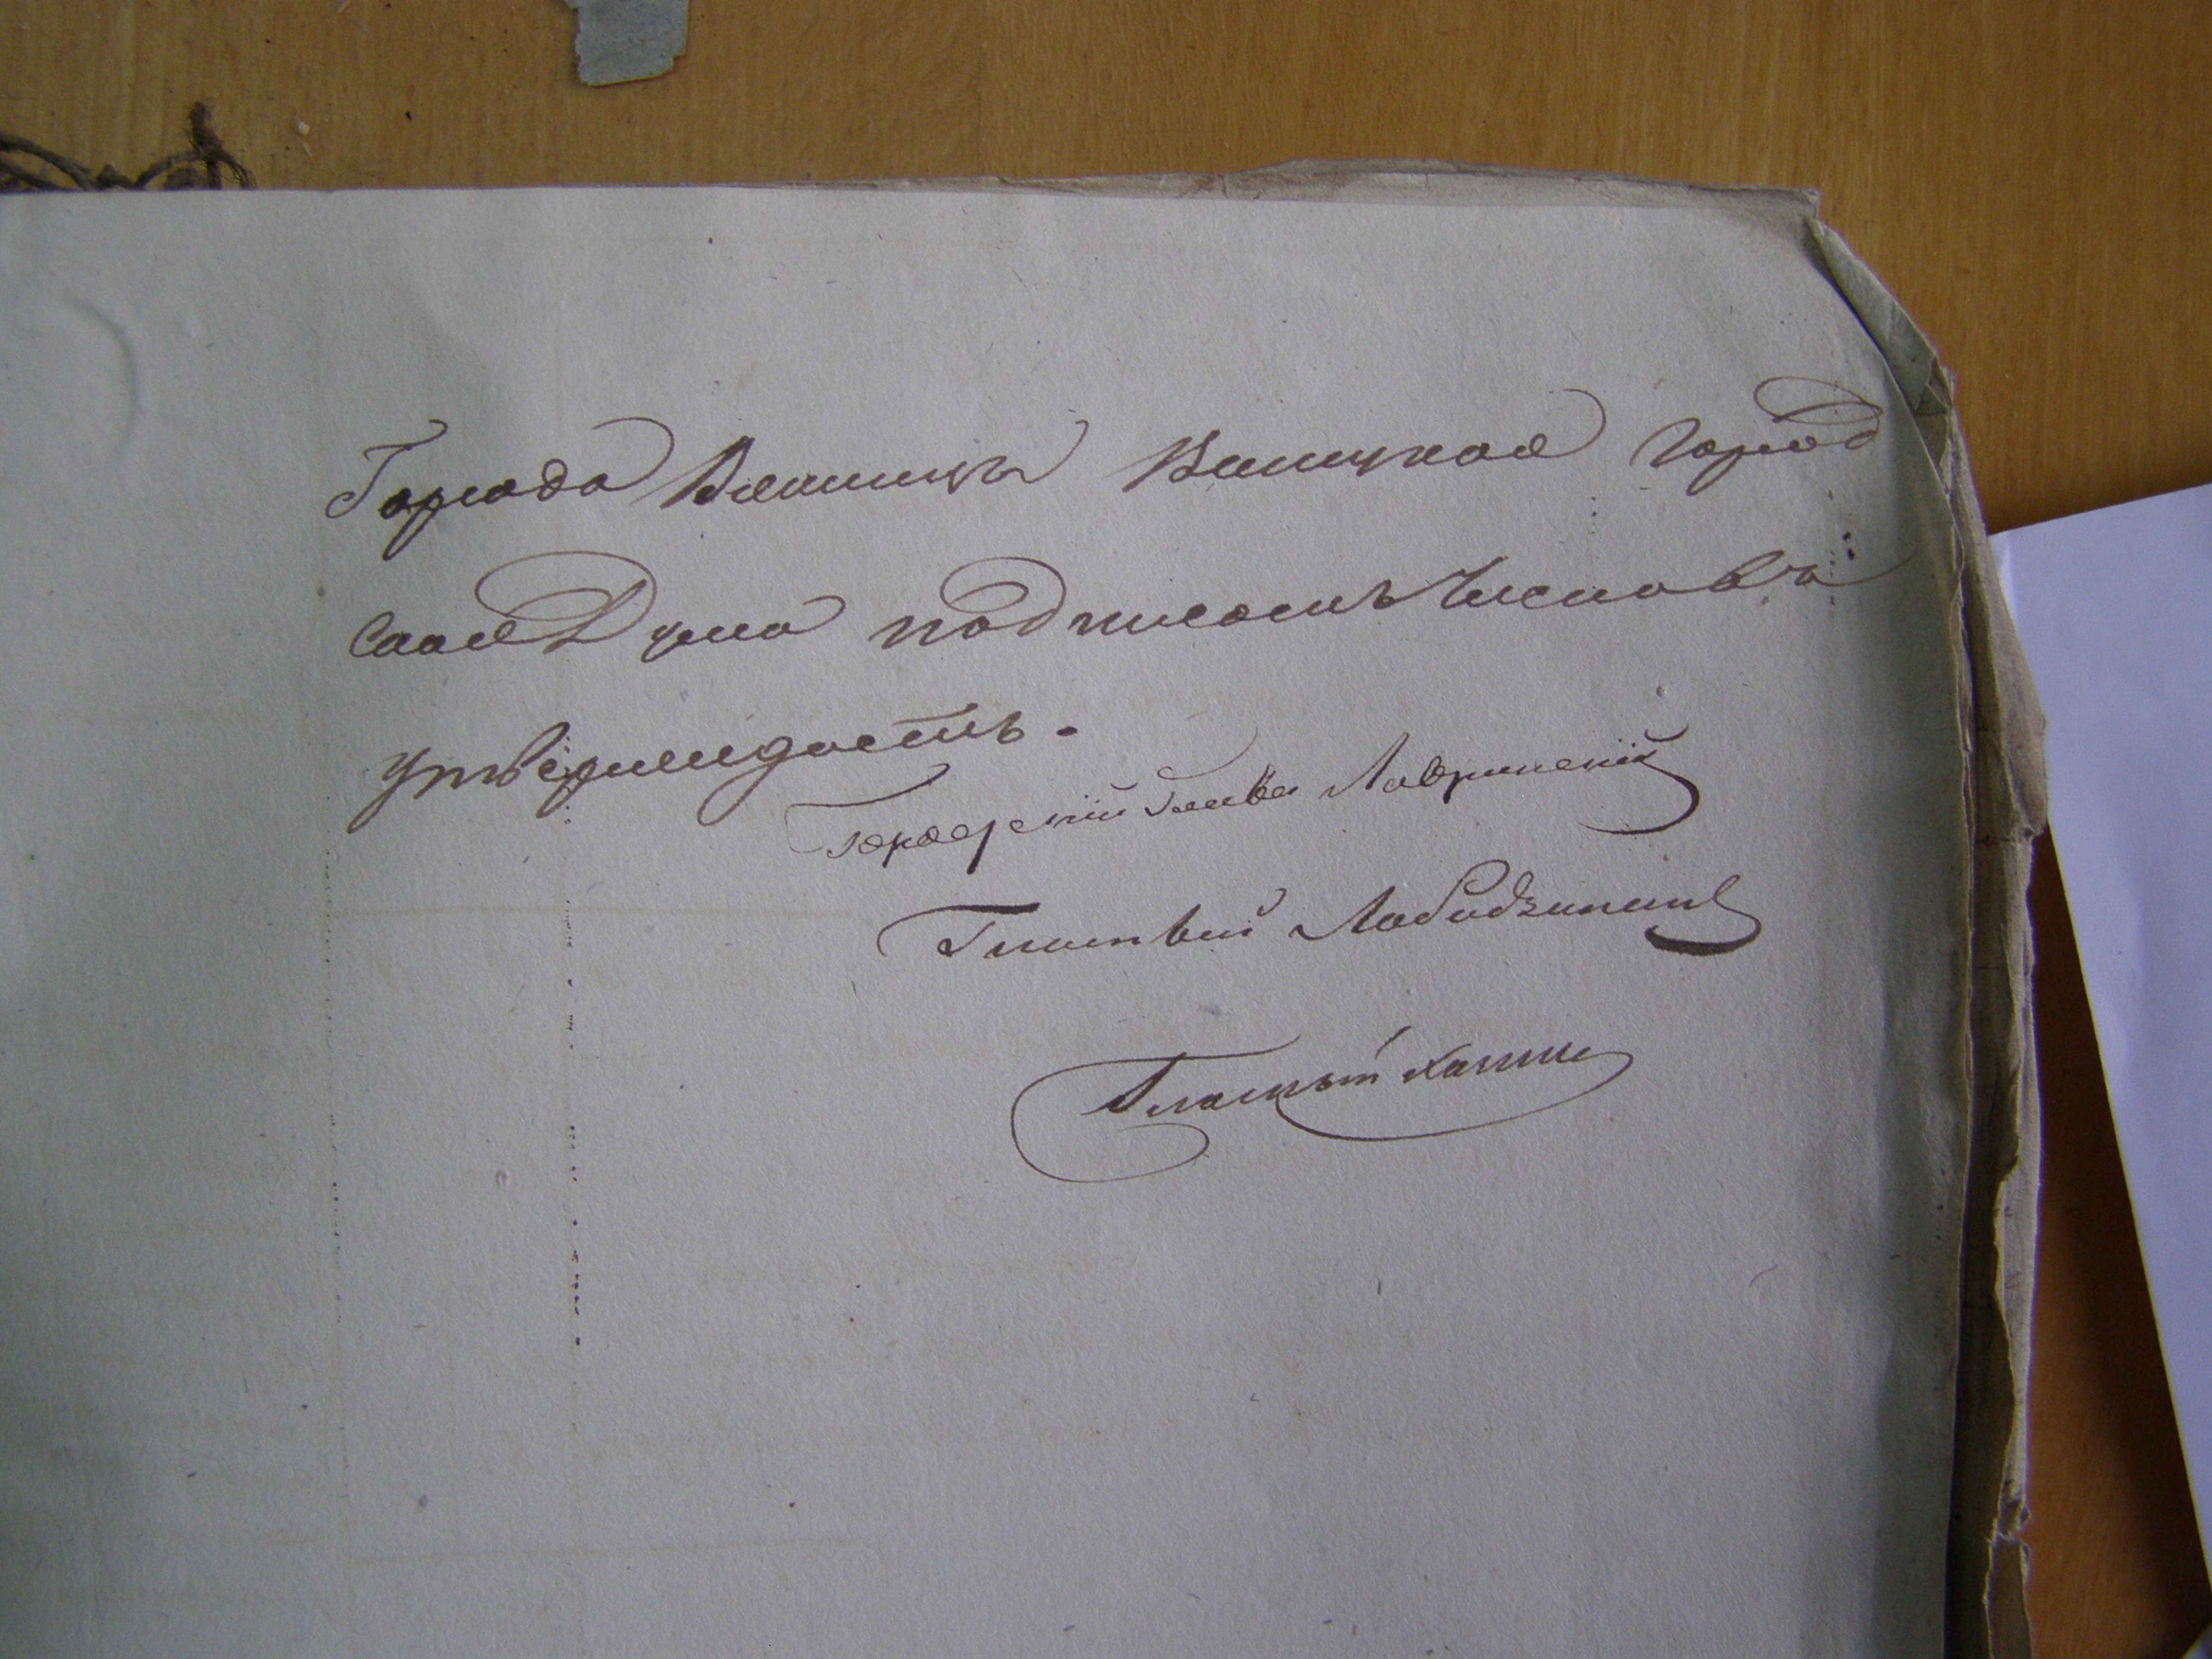 Города Винницы Виницкая Город
ская Дума подписомъ Членовъ
утверждаетъ.
Городский Глава Лавринский
Гласный Лободзинский
Гласный